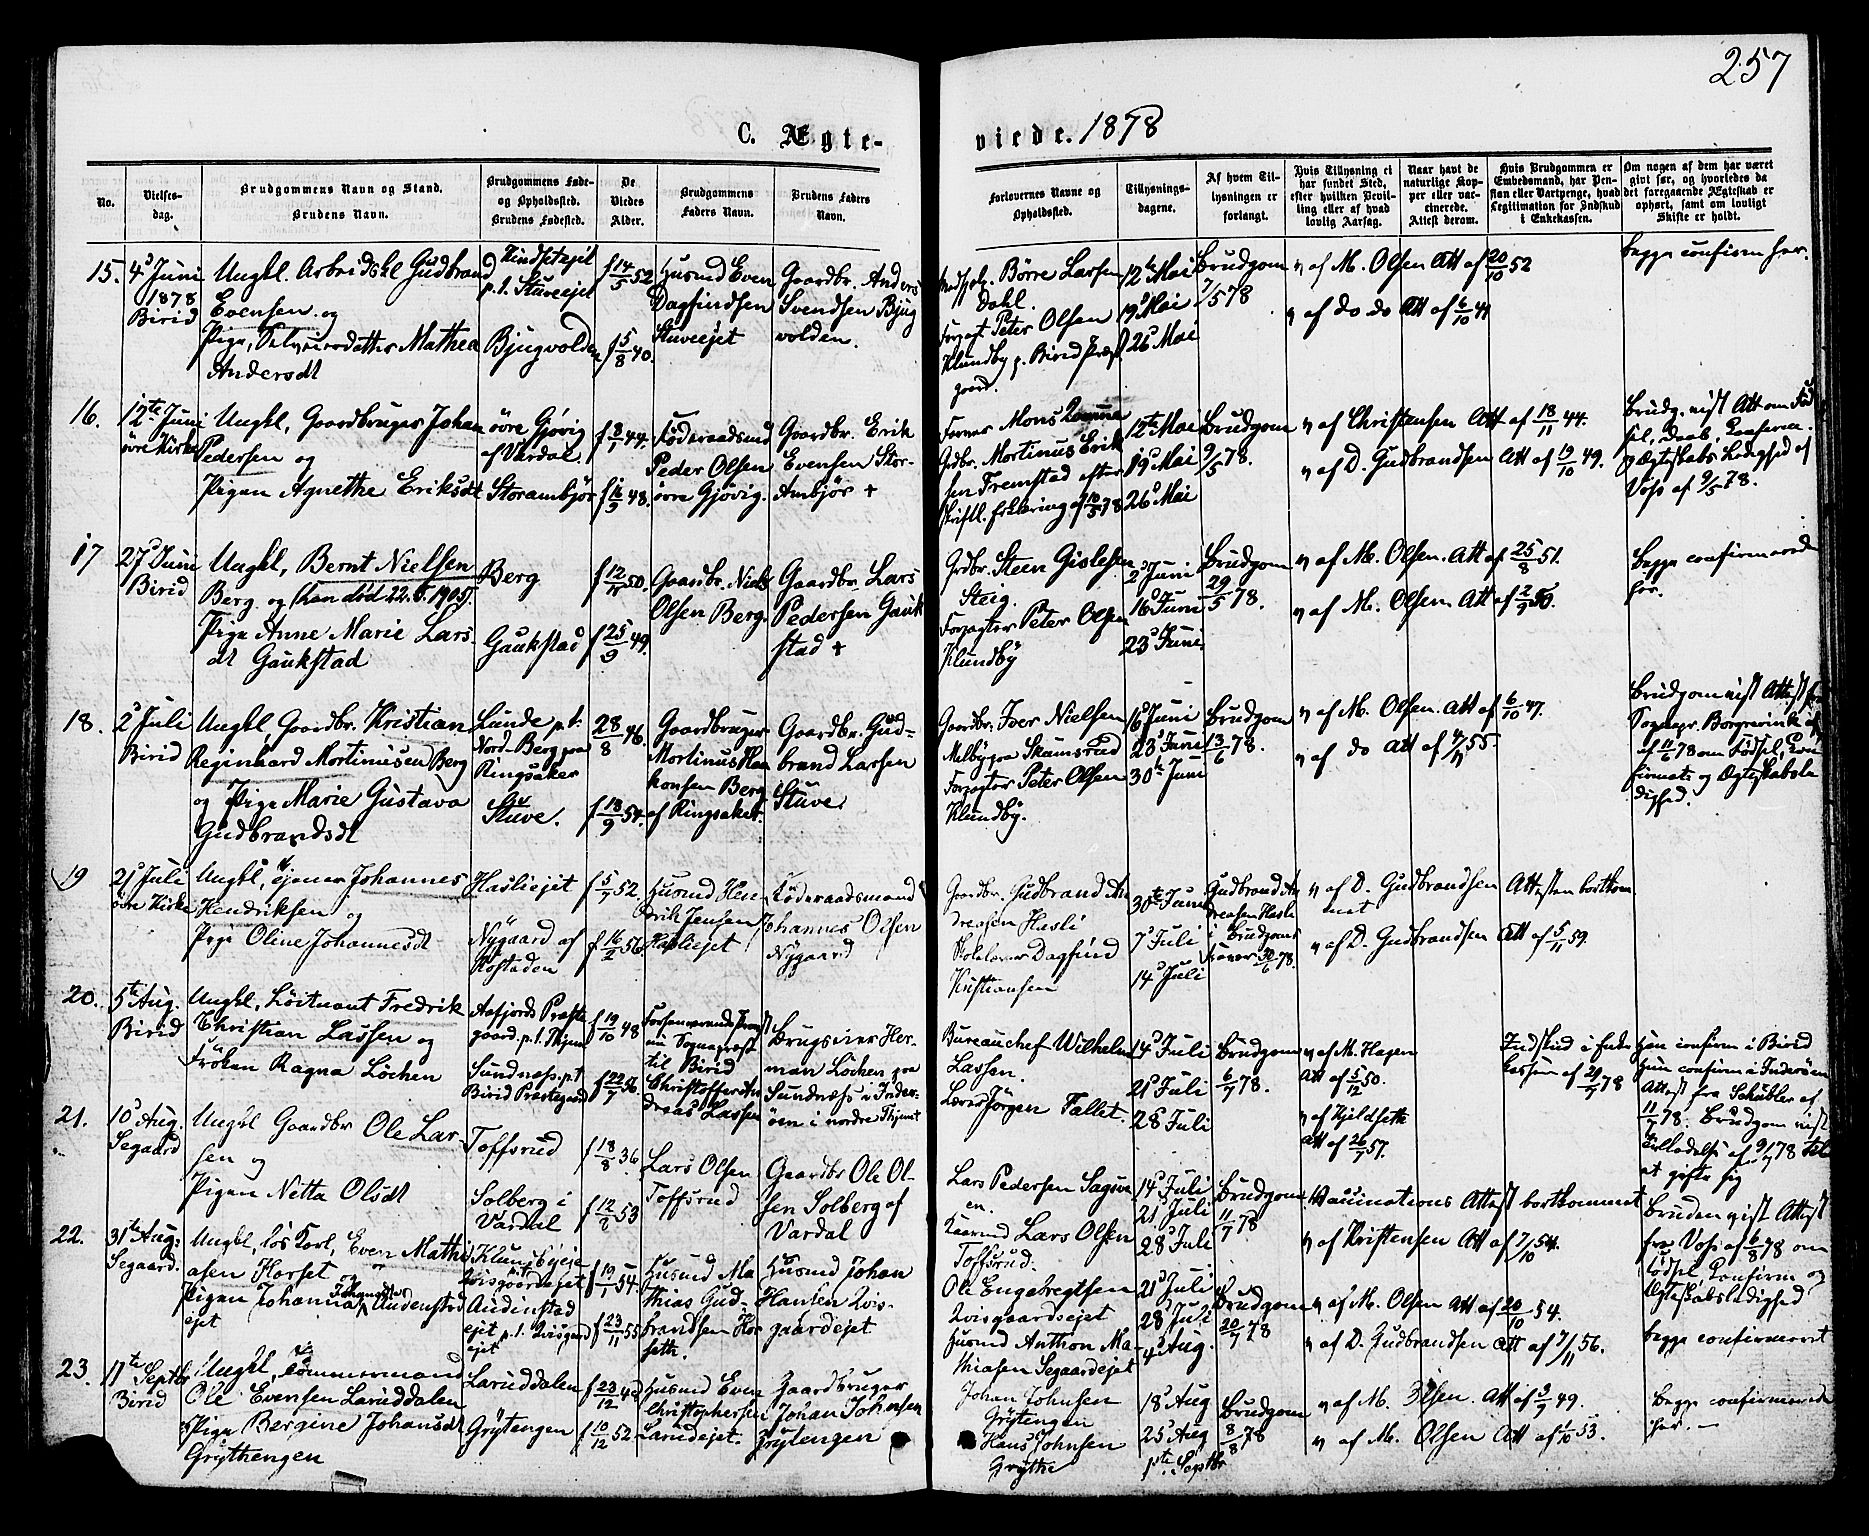 257
C. Ægte-
viede. 1878
No.
Vielses-
dag.
Brudgommens Navn og Stand.
Brudens Navn.
Brudgommens Føde-
og Opholdsted.
Brudens Fødested.
De
Viedes
Alder.
Brudgommens
Faders Navn.
Brudens Faders
Navn.
Forlovernes Navne og
Opholdsted.
Tillysnings-
dagene.
Af hvem Til-
lysningen er
forlangt.
Hvis Tillysning ei
har fundet Sted,
efter hvilken Bevil-
ling eller af hvad
lovlig Aarsag.
Naar havt de
naturlige Kop-
per eller vac-
cinerede.
Attest derom.
Hvis Brudgommen er
Embedsmand, har Pen-
sion eller Vartpenge, hvad
Legitimation for Indskud
i Enkekassen.
Om nogen af dem har været
givt før, og hvorledes da
det foregaaende Ægteskab er
ophørt, samt om lovligt
Skifte er holdt.
15.
4 Juni
1878
Birid
Ungkl. Arbeidskl Gudbrand
Evensen og
Pige, Mathea
Andersdt
p.t. Stuveejet
Bjugvolden
f 14/5 52
f 5/8 40.
Husmd Even
Dagfindsen
Stuveejet
Gaardbr. Anders
Svendsen Bjug
volden.
Børre Larsen
Dahl.
Peter Olsen
Klundby p. Birid Præst
gaard.
12te Mai
19 Mai
26 Mai
Brudgom
7/5 78
v af M. Olsen Att af 20/10 52
v af do do Att af 6/10 41
begge confirm her.
16.
12te Juni
øvre Kirke
Ungkl, Gaardbruger Johan
Pedersen og
Pigen Agnethe Eriksdt
øvre Gjøvig
af Vardal.
Storambjør
f 8/7 44.
f 16/5 48.
Føderaadsmd
Peder Olsen
øvre Gjøvig.
Gaardbr. Erik
Evensen Stor-
Ambjør +
Mons
Grdbr. Mortinus Erik
sen Fremstad efter
skriftl. Erklæring af 10/5 78
12te Mai
19 Mai
26 Mai
Brudgom
9/5 78.
v af Christensen Att af 18/11 44.
v af D. Gudbrandsen Att af 19/10 49.
Brudg. vist Att om Fød
sel, Daab, Confirm.
og Ægteskabs Ledighed af
Voss af 9/5 78.
17
27 Juni
Birid
Ungkl, Bernt Nielsen
Berg og (han død 22.6.1905).
Pige Anne Marie Lars
dt Gaukstad
Berg
Gaukstad
f 12/4 50.
f 25/9 49.
Gaardbr. Niels
Olsen Berg.
Gaardbr. Lars
Pedersen Gauk
stad +
Grdbr. Steen Gislesen
Steig.
Forpagter Peter Olsen
Klundby
2 Juni
16 Juni
23 Juni
Brudgom
29/5 78.
v af M. Olsen. Att af 25/8 51.
v af M. Olsen Att af 2/9 50.
begge confirmerede
her.
18.
2 Juli
Birid
Ungkl, Gaardbr. Kristian
Reginhard Mortinusen Berg
og Pige Marie Gustava
Gudbrandsdt
Lunde p.t.
Nord-Berg paa
Ringsaker
Stuve.
28/8 46.
f 18/9 54.
Gaardbruger
Mortinus Haa
konsen Berg
af Ringsaker.
Gaardbr. Gud-
brand Larsen
Stuve
Gaardbr. Iver Nielsen
Melby paa Skumsrud
Forpagter Peter Olsen
Klundby.
16 Juni
23 Juni
30te Juni
Brudgom
13/6 78.
v af M. Olsen. Att af 6/10 47.
v af do Att af 4/7 55.
Brudgom vist Attest fra
Sognepr. Borgrevink af
11/6 78 om Fødsel, Con
firmat. og Ægteskabsle
dighed.
19
21 Juli
øvre Kirke
Ungkl, Johannes
Hendriksen og
Pige Oline Johannesdt
Hasliejet
Nygaard af
f 5/7 52.
f 16/2 56
Husmd Hen
drik Jensen
Hasliejet
Føderaadsmand
Johannes Olsen
Nygaard
Gaardbr. Gudbrand An
dreasen Hasli
Skolelærer Dagfind
Kristiansen
30te Juni
7 Juli
14 Juli
Gudbrand An
dreasen Hasli
i Brudgoms
30/6 78.
v af D. Gudbrandsen Attesten bortkom
met
v af D. Gudbrandsen Att af 5/11 59.
20.
5te Aug.
Birid
Ungkl, Löitnant Fredrik
Christian Lassen og
Frøken Ragna Löchen
Aafjords Præste
gaard. p.t.
Sundnæs. p.t
Birid Præstegaard
f 19/10 48
f 22/7 56
Forhenværende
nu Sognepræst
til Birid
Christoffer An
dreas Lassen
Brugseier Her-
man Löchen paa
Sundnæs i Inder-
øen i nordre
Bureauchef Wilhelm
Lassen.
Jörgen Fallet.
14 Juli
21 Juli
28 Juli
Brudgom
6/7 78.
v af M. Hagen
Att af 5/12 50.
v af Kjeldseth
Att af 26/7 57.
Indskud i Enke
kassen af 21/7 78
Han confirm i Birid
Hun confirm i Inderøen
Attest fra Schübler af
11/7 78. Brudgom vist
Tilladelse af 9/7 78 til
at gifte sig
21.
10 Aug.
Segaard
Ungkl Gaardbr Ole Lar-
sen og
Pigen Netta Olsdt
Toffsrud
Solberg i
Vardal
f 18/8 36
f 12/8 53
Lars Olsen
Toffsrud
Gaardbr Ole Ol-
sen Solberg af
Vardal
Lars Pedersen
Lars Olsen
Toffsrud.
14 Juli
21 Juli
28 Juli
Brudgom
11/7 78
Vaccinations Attest bortkommet
v af Kristensen Att af 7/10 54.
Bruden vist Attest
fra Voss af 6/8 78 om
Fødsel, Confirm og
Ægteskabsledighed
22.
31te Aug.
Segaard.
Ungkl, løs Karl, Even Mathi
asen Horset og
Pigen Johanna Johansdtr Audenstad
ejet
Audinstad
ejet p.t. Qvisgaard
ejet
f 19/1 54
f 23/11 55
Husmd Ma
thias Gud-
brandsen Hor
seth.
Husmd Johan
Hansen Qvis-
gaardejet
Ole Engebregtsen
Qvisgaardsejet
Husmd Anthon Ma-
thiasen Segaardejet
21 Juli
28 Juli
4 Aug.
Brudgom
20/7 78
v af M. Olsen Att af 20/10 54.
v af D. Gudbrandsen Att af 7/11 56.
begge confirmeret
23.
11te Septbr
Birid
Ungkl, Tømmermand
Ole Evensen Laruddalen
Pige Bergine Johansdt
Grythengen
Laruddalen
Grytengen
f 23/12 42
f 10/12 52
Husmd Even
Christophersen
Larudejet.
Gaardbruger
Johan Johnsen
Grytengen
Johan Johnsen
Grytengen
Hans Johnsen
Grythe
18 Aug
25 Aug
1te Septbr
Brudgom
8/8 78
v af M. Olsen. Att af 9/7 49.
v af M. Olsen Att af 1/10 53.
begge confirmerede
her. -